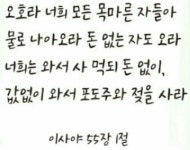 오호라 너희 모든 목마른 자들아
물로 나아오라 돈 없는 자도 오라
너희는 와서 사 먹되 돈 없이,
값없이 와서 포도주와 젖을 사라
이사야 55장 1절